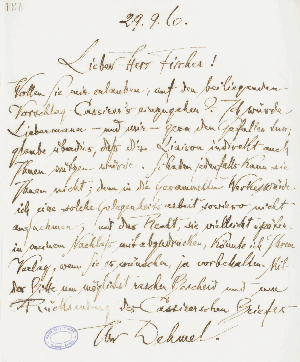 29.9.6.
Lieber Herr Fischer!
Wollen Sie mir erlauben, auf den beiliegenden
Vorschlag Cassirer's einzugehen? Ich würde
Liebermann – und mir – gern den Gefallen tun,
glaube überdies, daß die Liaison indirekt auch
Ihnen nützen würde. Schaden jedenfalls kann sie
Ihnen nicht; denn in die Gesammelten Werke
ich eine solche Gelegenheitsarbeit sowieso nicht
aufnehmen, und das Recht, sie vielleicht später
in meinem Nachlaß mit abzudrucken, könnte ich Ihrem
Verlag, wenn Sie es wünschen, ja vorbehalten. Mit
der Bitte um möglichst raschen Bescheid und um
Rücksendung des Cassirerschen Briefes
Ihr Dehmel.